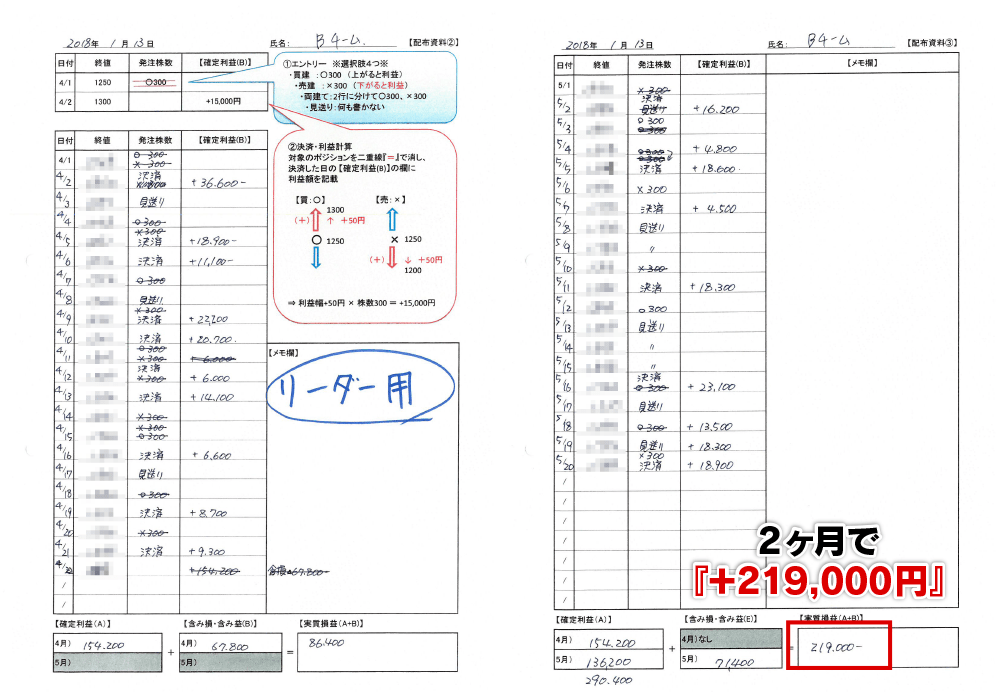 2018年 1月 13日
氏名: Bチーム.
【配布資料②】
日付 終値 発注株数 【確定利益(B)】
4/1 1250 〇300
4/2 1300 +15,000円
①エントリー ※選択肢4つ※
・買建 :〇300 (上がると利益)
・売建 :×300 (下がると利益)
・両建て:2行に分けて〇300、×300
・見送り:何も書かない
日付 終値 発注株数 【確定利益(B)】
4/1 〇300
×300
4/2 決済 +36.600-
×300
4/3 見送り
4/4 〇300
×300
4/5 決済 +18.900-
4/6 決済 +11,100-
4/7 〇300
4/8 見送り
×300
4/9 決済 +22,200
4/10 決済 +20.700.
〇300
4/11 ×300 +6.000
決済
4/12 ×300 +6.000
4/13 決済 +14,100
4/14 ×300
×300
4/15 〇300
4/16 決済 +6,600
4/17 見送り
4/18 〇300
4/19 決済 +8,700
4/20 ×300
4/21 決済 +9.300
+154.200
②決済・利益計算
対象のポジションを二重線『=』で消し、
決済した日の【確定利益(B)】の欄に
利益額を記載
【買:〇】 【売:×】
1300
(+) ↑ +50円
〇 1250
× 1250
(+) ↓ +50円
1200
⇒ 利益幅+50円 × 株数300 = +15,000円
【メモ欄】
リーダー用
【確定利益(A)】 【含み損・含み益(B)】 【実質損益(A+B)】
4月) 154.200 + 4月) 67.800 = 86.400
5月) 5月)
2018年 1月 13日
氏名: Bチーム
【配布資料③】
日付 終値 発注株数 【確定利益(B)】 【メモ欄】
5/1 ×300
決済
5/2 見送り +16.200
〇300
5/3 〇300
5/4 〇300 +4.800
〇300
5/5 決済 +18.600.
5/6 ×300
5/7 決済 +4.500
5/8 見送り
5/9 〃
5/10 ×300
5/11 決済 +18.300
5/12 〇300
5/13 見送り
5/14 〃
5/15 〃
決済
5/16 〇300 +23,100
5/17 見送り
5/18 〇300 +13,500
5/19 見送り +18.300
×300
5/20 決済 +18.900
2ヶ月で
『+219,000円』
【確定利益(A)】 【含み損・含み益(E)】 【実質損益(A+B)】
4月) 154.200 + 4月)なし = 219.000-
5月) 136,200 5月) 71,400
290.400